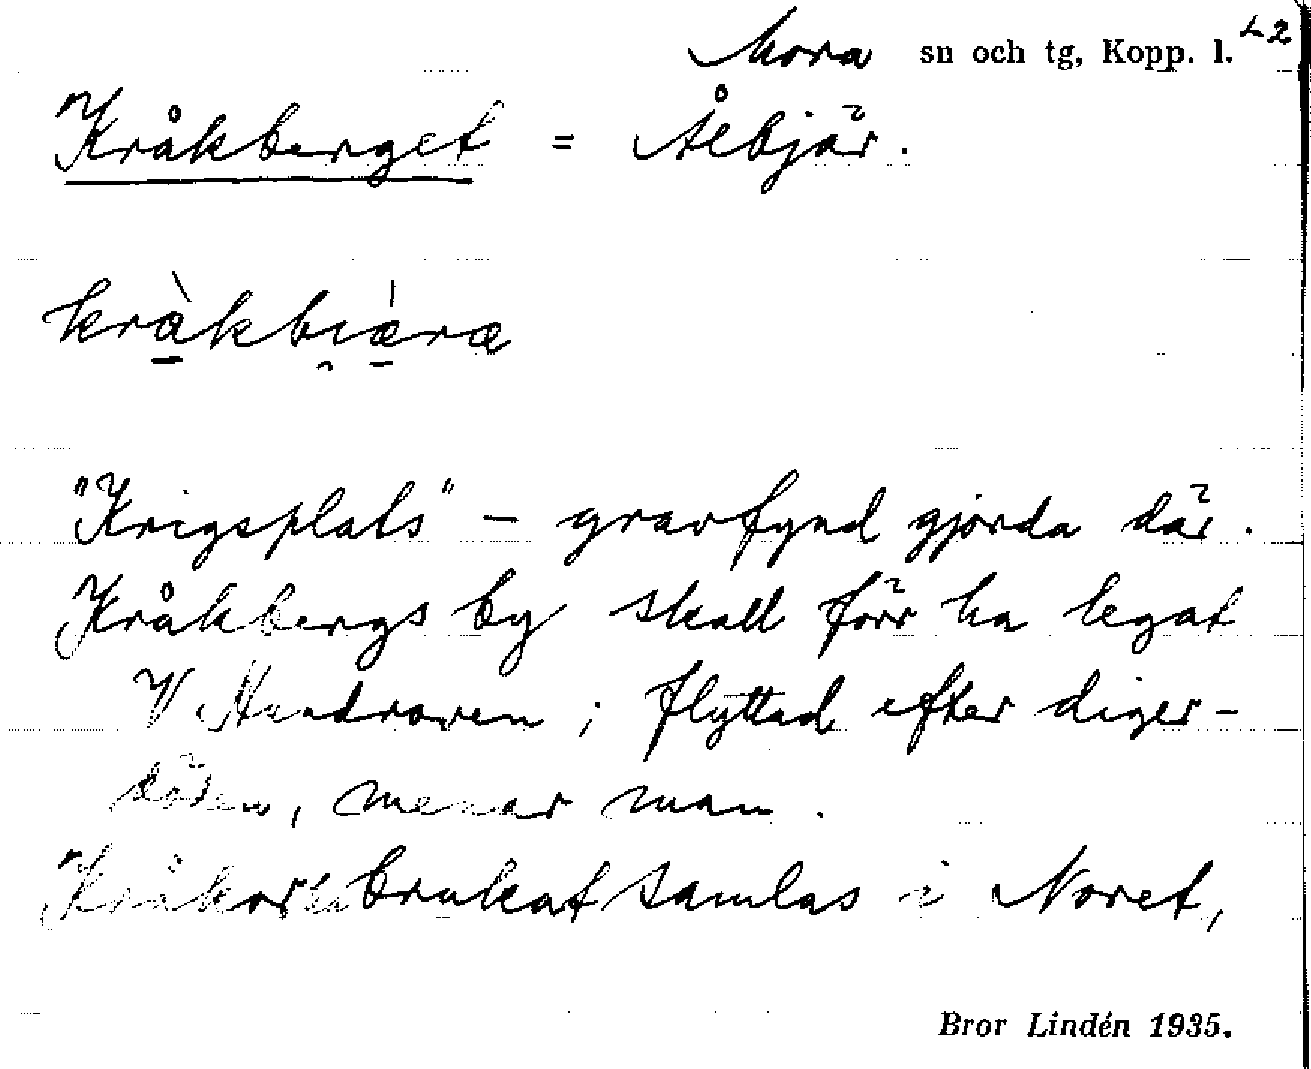 Mora sn och tg, Kopp. l. L2
Kråkberget = Åebjär.
kràkbiæ̀ræ
"Krigsplats" – gravfynd gjorda där.
Kråkbergs by skall förr ha legat
V Handroven; flyttad efter diger-
döden, menar man.
Kråkorna brukat samlas i Noret,
Bror Lindén 1935.